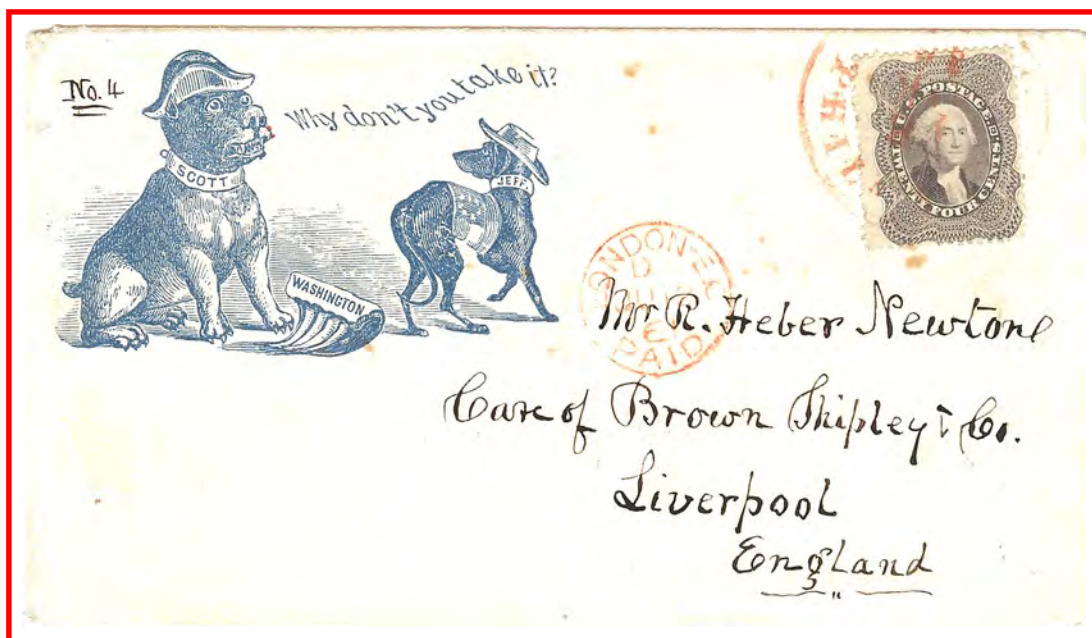 No. 4
Why don't you take it?
SCOTT
JEFF.
WASHINGTON
U.S. POSTAGE
TWENTY FOUR CENTS
PAID
Mr R. Heber Newton
Care of Brown Shipley & Co.
Liverpool
England